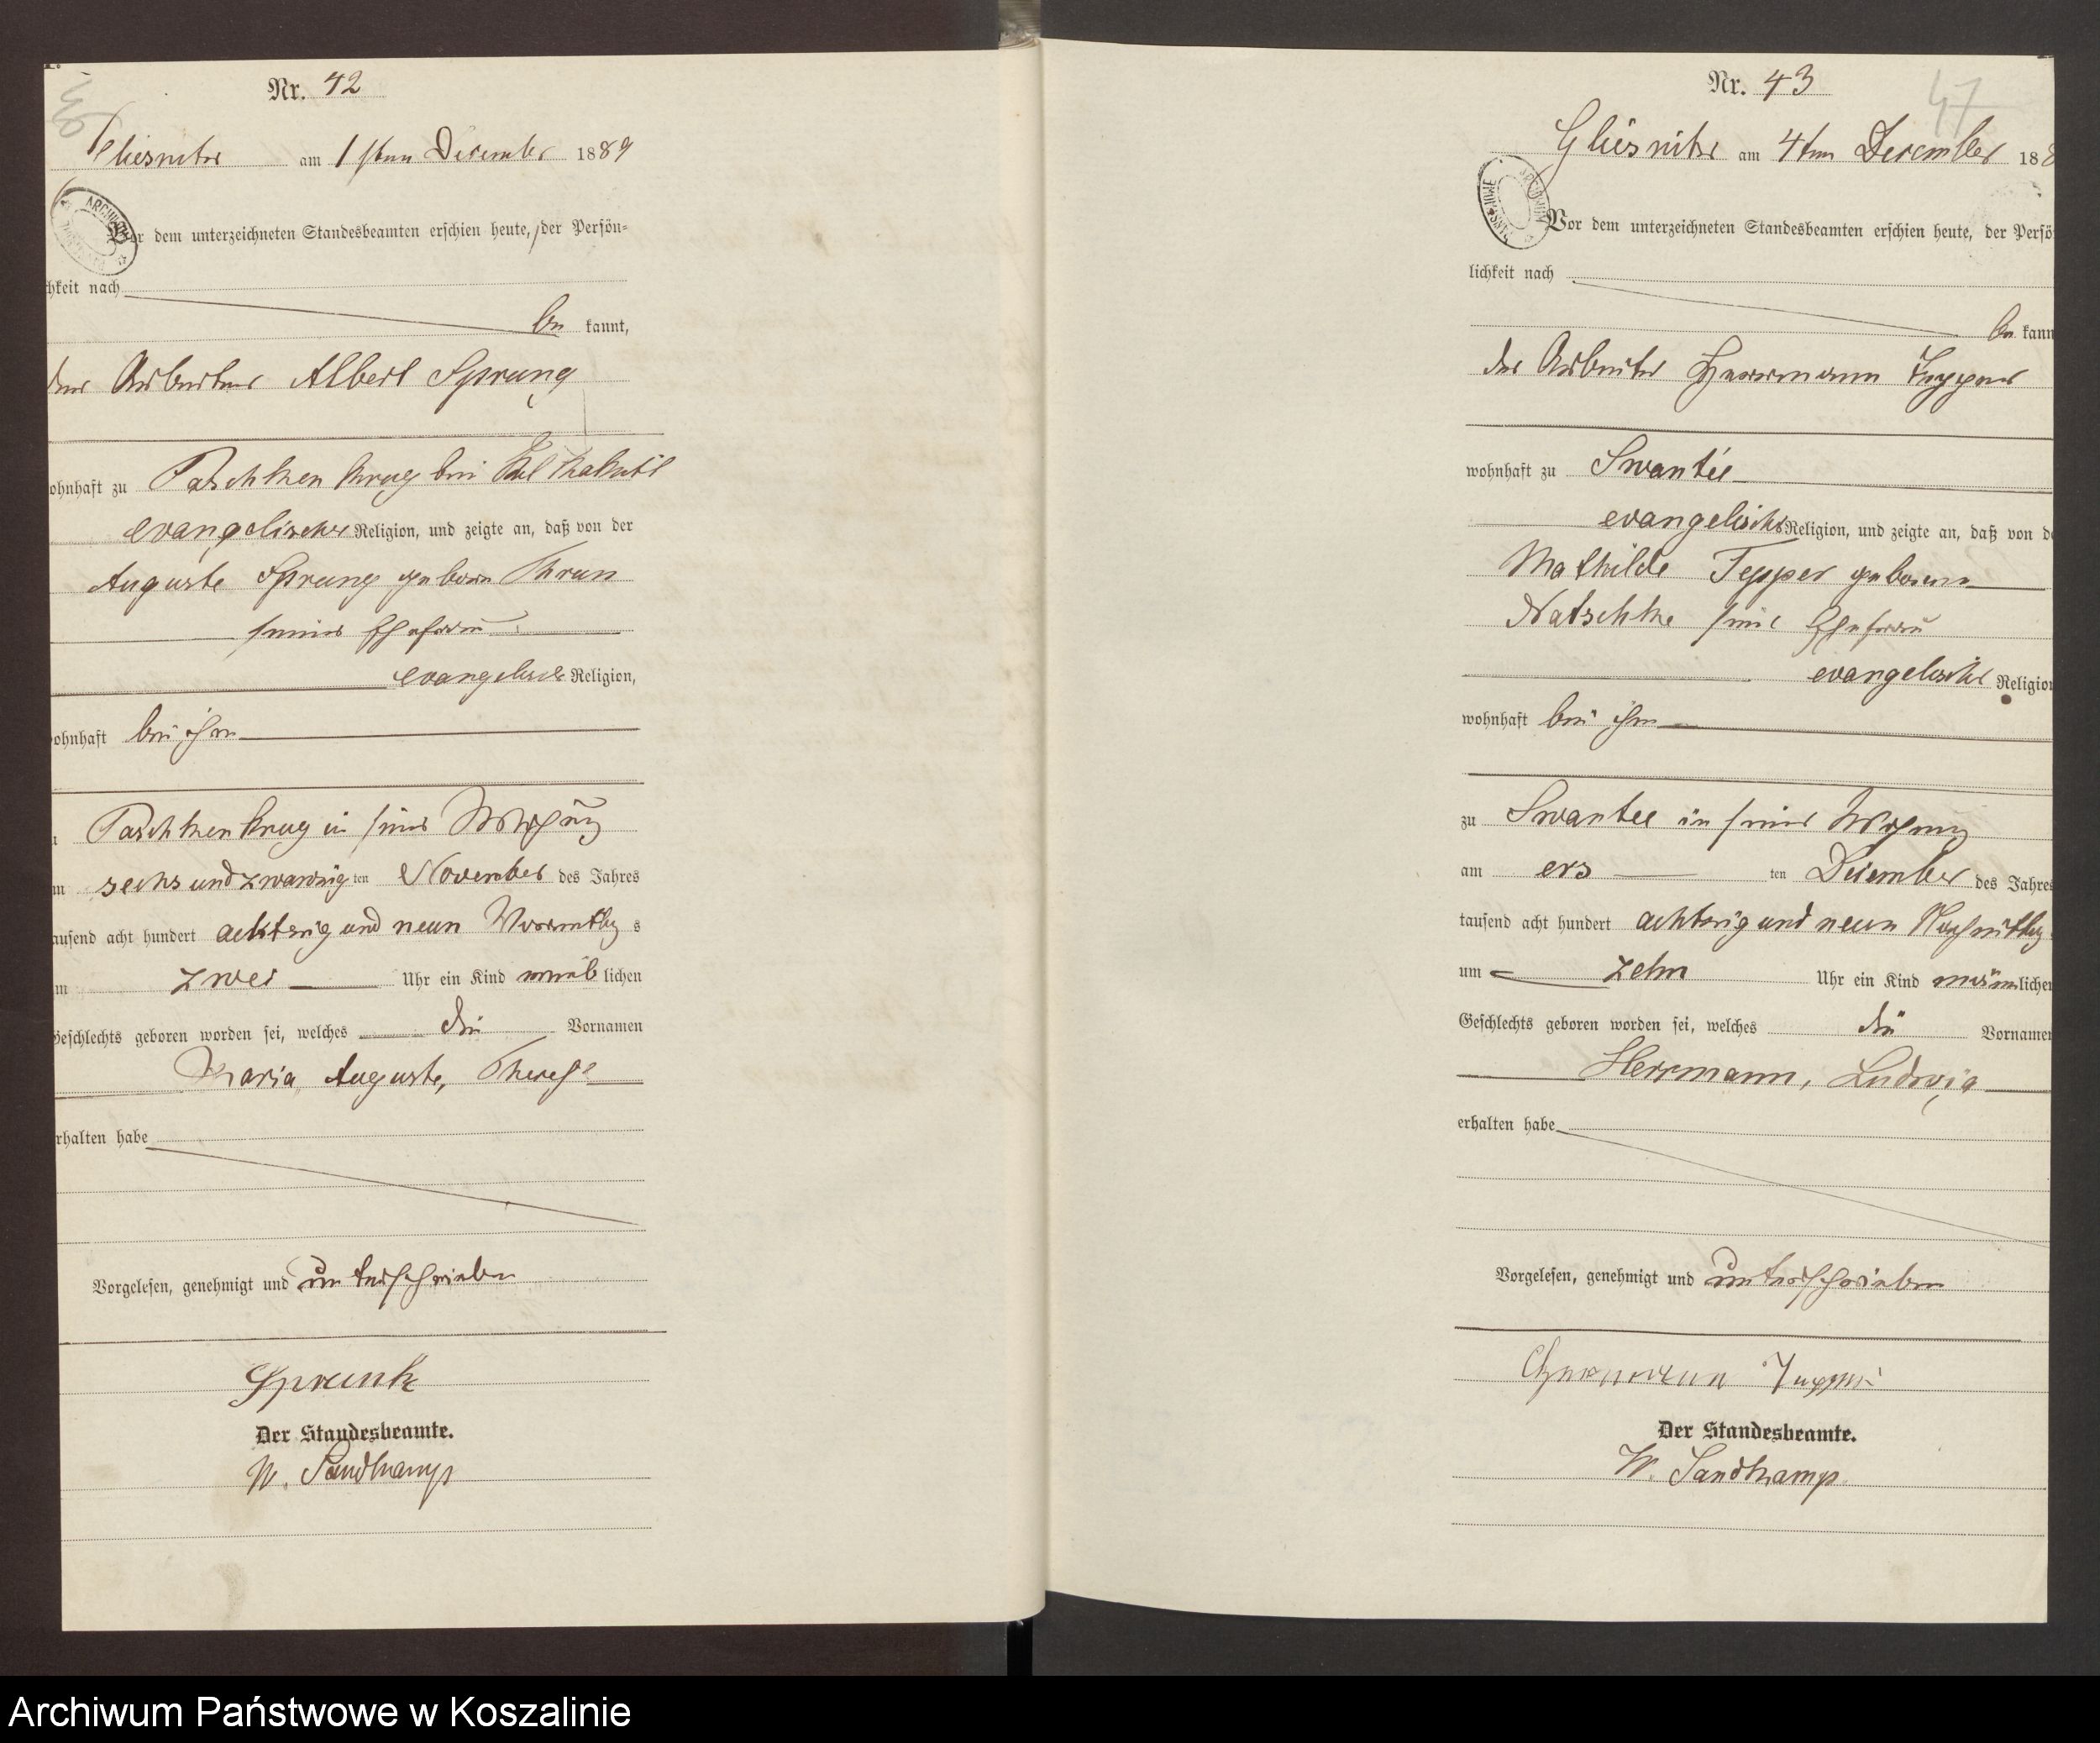 Nr. 42
Gliesnitz am 1sten Dezember 1889
Vor dem unterzeichneten Standesbeamten erschien heute, der Persön-
hkeit nach
be kannt,
der Arbeiter Albert Sprung
ohnhaft zu Paschken Krug bei
evangelischer Religion, und zeigte an, daß von der
Auguste Sprung geborne Thrun
seiner Ehefrau
evangelischer Religion,
ohnhaft bei ihm
Paschken Krug in seiner Wohnung
m sechs und zwanzig ten November des Jahres
ausend acht hundert achtzig und neun Vormittag s
m zwei Uhr ein Kind weib lichen
Geschlechts geboren worden sei, welches die Vornamen
Maria, Auguste, Therese
rhalten habe
Vorgelesen, genehmigt und unterschrieben
Sprunk
Der Standesbeamte.
W. Sandkamp
Nr. 43
47
Gliesnitz am 4ten Dezember 188
Vor dem unterzeichneten Standesbeamten erschien heute, der Persö
lichkeit nach
be kann
der Arbeiter Herrmann Tepper
wohnhaft zu Swantee
evangelischer Religion, und zeigte an, daß von de
Mathilde Tepper geborene
Natschke seine Ehefrau
evangelischer Religion
wohnhaft bei ihm
zu Swantee in seiner Wohnung
am ers ten Dezember des Jahres
tausend acht hundert achtzig und neun Nachmittag
um zehn Uhr ein Kind männlichen
Geschlechts geboren worden sei, welches die Vornamen
Herrmann, Ludwig
erhalten habe
Vorgelesen, genehmigt und unterschrieben
Herrmann Tepper
Der Standesbeamte.
W. Sandkamp
Archiwum Państwowe w Koszalinie